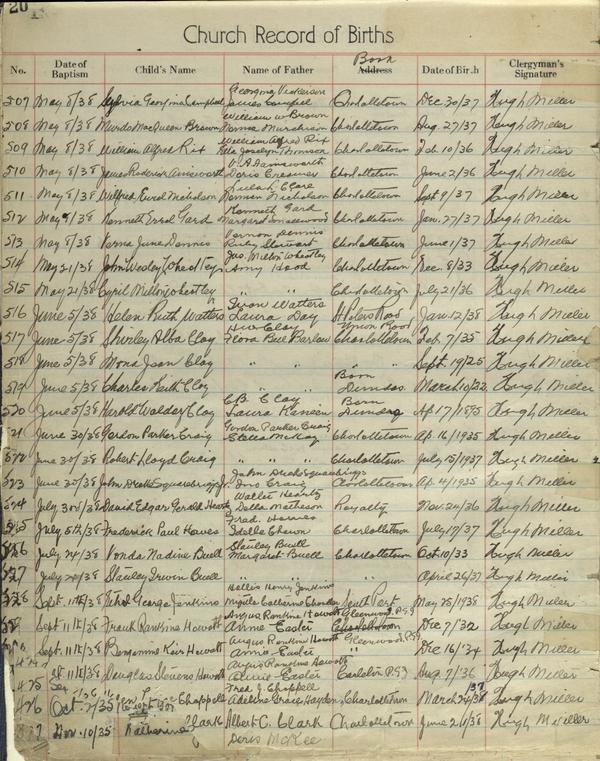 20
Church Record of Births
No. Date of Baptism Child's Name Name of Father Born Address Date of Birth Clergyman's Signature
Georgina
507 May 8/38 Sylvia Georgina Campbell James Campbell Charlottetown Dec. 30/37 Hugh Miller
William W Brown
508 May 8/38 Murdo MacQueen Brown Norma Murchison Charlottetown Aug. 27/37 Hugh Miller
William Alfred Rix
509 May 8/38 William Alfred Rix Jocelyn Thomson Charlottetown Feb. 10/36 Hugh Miller
Ainsworth
510 May 8/38 James Roderick Ainsworth Doris Creamer Charlottetown June 2/36 Hugh Miller
511 May 8/38 Wilfred Nicholson Nicholson Charlottetown Sept 9/37 Hugh Miller
Kenneth Gard
512 May 8/38 Kenneth Errol Gard Margaret Charlottetown Jan. 27/37 Hugh Miller
Vernon Dennis
513 May 8/38 Verna June Dennis Ruby Stewart Charlottetown June 1/37 Hugh Miller
Jas. Milton Wheatley
514 May 21/38 John Wesley Wheatley Amy Hood Charlottetown Dec. 8/33 Hugh Miller
515 May 21/38 Cyril Milton Wheatley " " Charlottetown July 21/36 Hugh Miller
Watters
516 June 5/38 Helen Ruth Watters Laura Day St Peters Road Jan. 12/38 Hugh Miller
Clay Union Road
517 June 5/38 Shirley Alba Clay Flora Bell Barlow Charlottetown Feb. 7/35 Hugh Miller
518 June 5/38 Mona Jean Clay " " " " Sept. 19/25 Hugh Miller
Born
519 June 5/38 Charles Keith Clay " " " Dundas March 10/32 Hugh Miller
C.B. Clay Born
520 June 5/38 Harold Waldor Clay Laura Dundas Ap. 17/1895 Hugh Miller
Gordon Parker Craig
521 June 30/38 Gordon Parker Craig Stella McKay Charlottetown Ap. 16/1935 Hugh Miller
522 June 30/38 Robert Lloyd Craig " " " Charlottetown July 15/1937 Hugh Miller
John
523 June 30/38 John Craig Charlottetown Ap. 4/1935 Hugh Miller
Walter
524 July 30/38 David Edgar Gerald Della Matheson Royalty Nov. 24/36 Hugh Miller
Fred. Hawes
525 July 5th/38 Frederick Paul Hawes Idella Charlottetown July 17/37 Hugh Miller
Stanley Buell
526 July 24/38 Vonda Nadine Buell Margaret Buell Charlottetown Oct 10/33 Hugh Miller
527 July 24/38 Stanley Irwin Buell " " " April 26/37 Hugh Miller
Hollis Henry Jenkins
528 Sept. 11th/38 George Jenkins Myrtle Catherine South Port May 25/1938 Hugh Miller
Angus Rankine Howatt Glenwood P.E.I
529 Sept. 11th/38 Frank Rankine Howatt Annie Easter Charlottetown Dec 7/32 Hugh Miller
Angus Rankine Howatt Glenwood P.E.I
Sept. 11th/38 Benjamin Keir Howatt Annie Easter " Dec 16/34 Hugh Miller
474 Angus Rankine Howatt
Sept. 11th/38 Douglas Stevens Howatt Annie Easter Carleton P.E.I Aug. 7/36 Hugh Miller
475 Fred J. Chappell
476 Oct. 7/35 Chappell Adeline Grace Hayden Charlottetown March Hugh Miller
Nov. 10/35 Katherine Clark Albert C. Clark Charlottetown June 21/38 Hugh Miller
Doris McKee